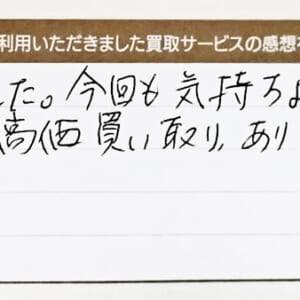 利用いただきました買取サービスの感想
した。今回も気持ちよ
高価買い取り、あり